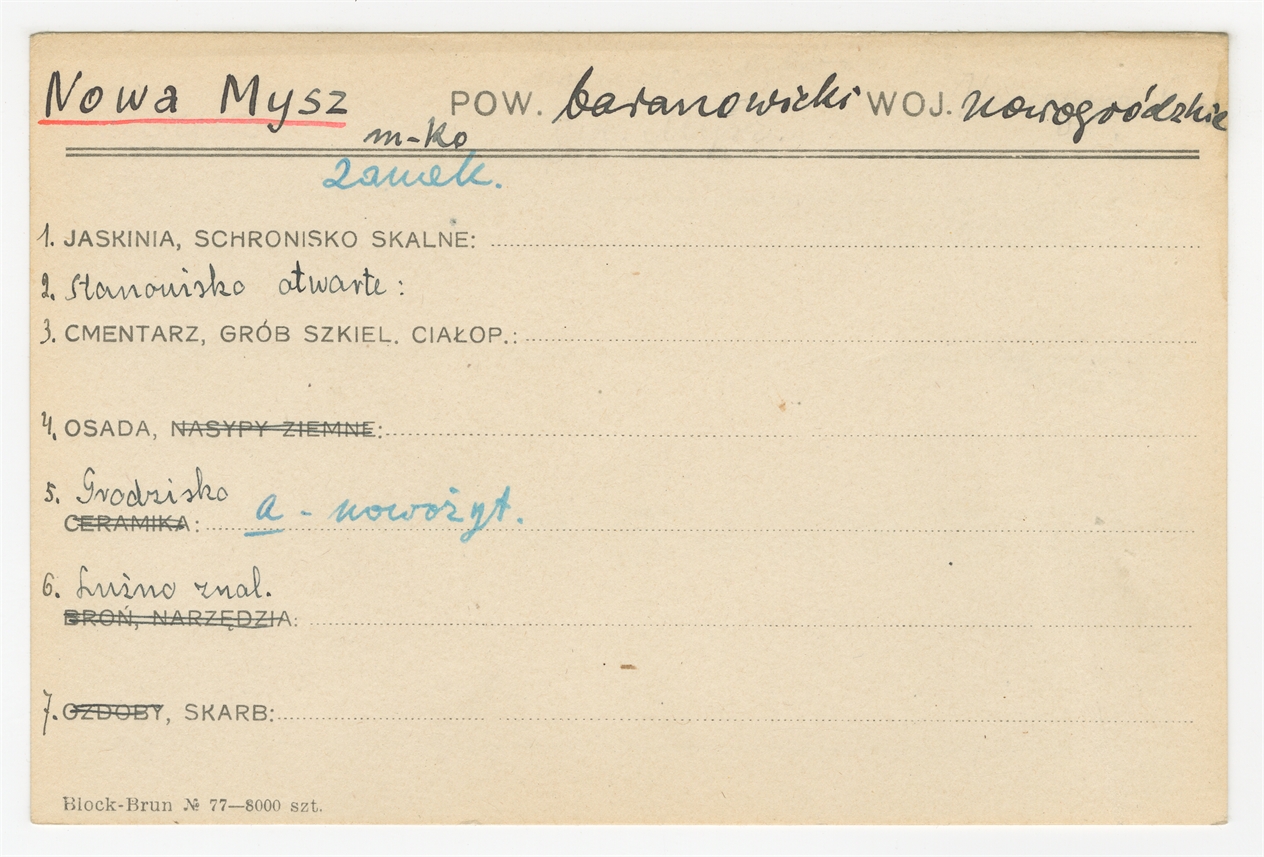 Nowa Mysz POW. baranowicki WOJ. nowogródzkie
m-ko
Zamek.
1. JASKINIA, SCHRONISKO SKALNE:
2. Stanowisko otwarte:
3. CMENTARZ, GRÓB SZKIEL. CIAŁOP.:
4. OSADA, NASYPY ZIEMNE:
5. Grodzisko
CERAMIKA: a - nowożyt.
6. Luźno znal.
BROŃ, NARZĘDZIA:
7. OZDOBY, SKARB:
Block-Brun № 77—8000 szt.